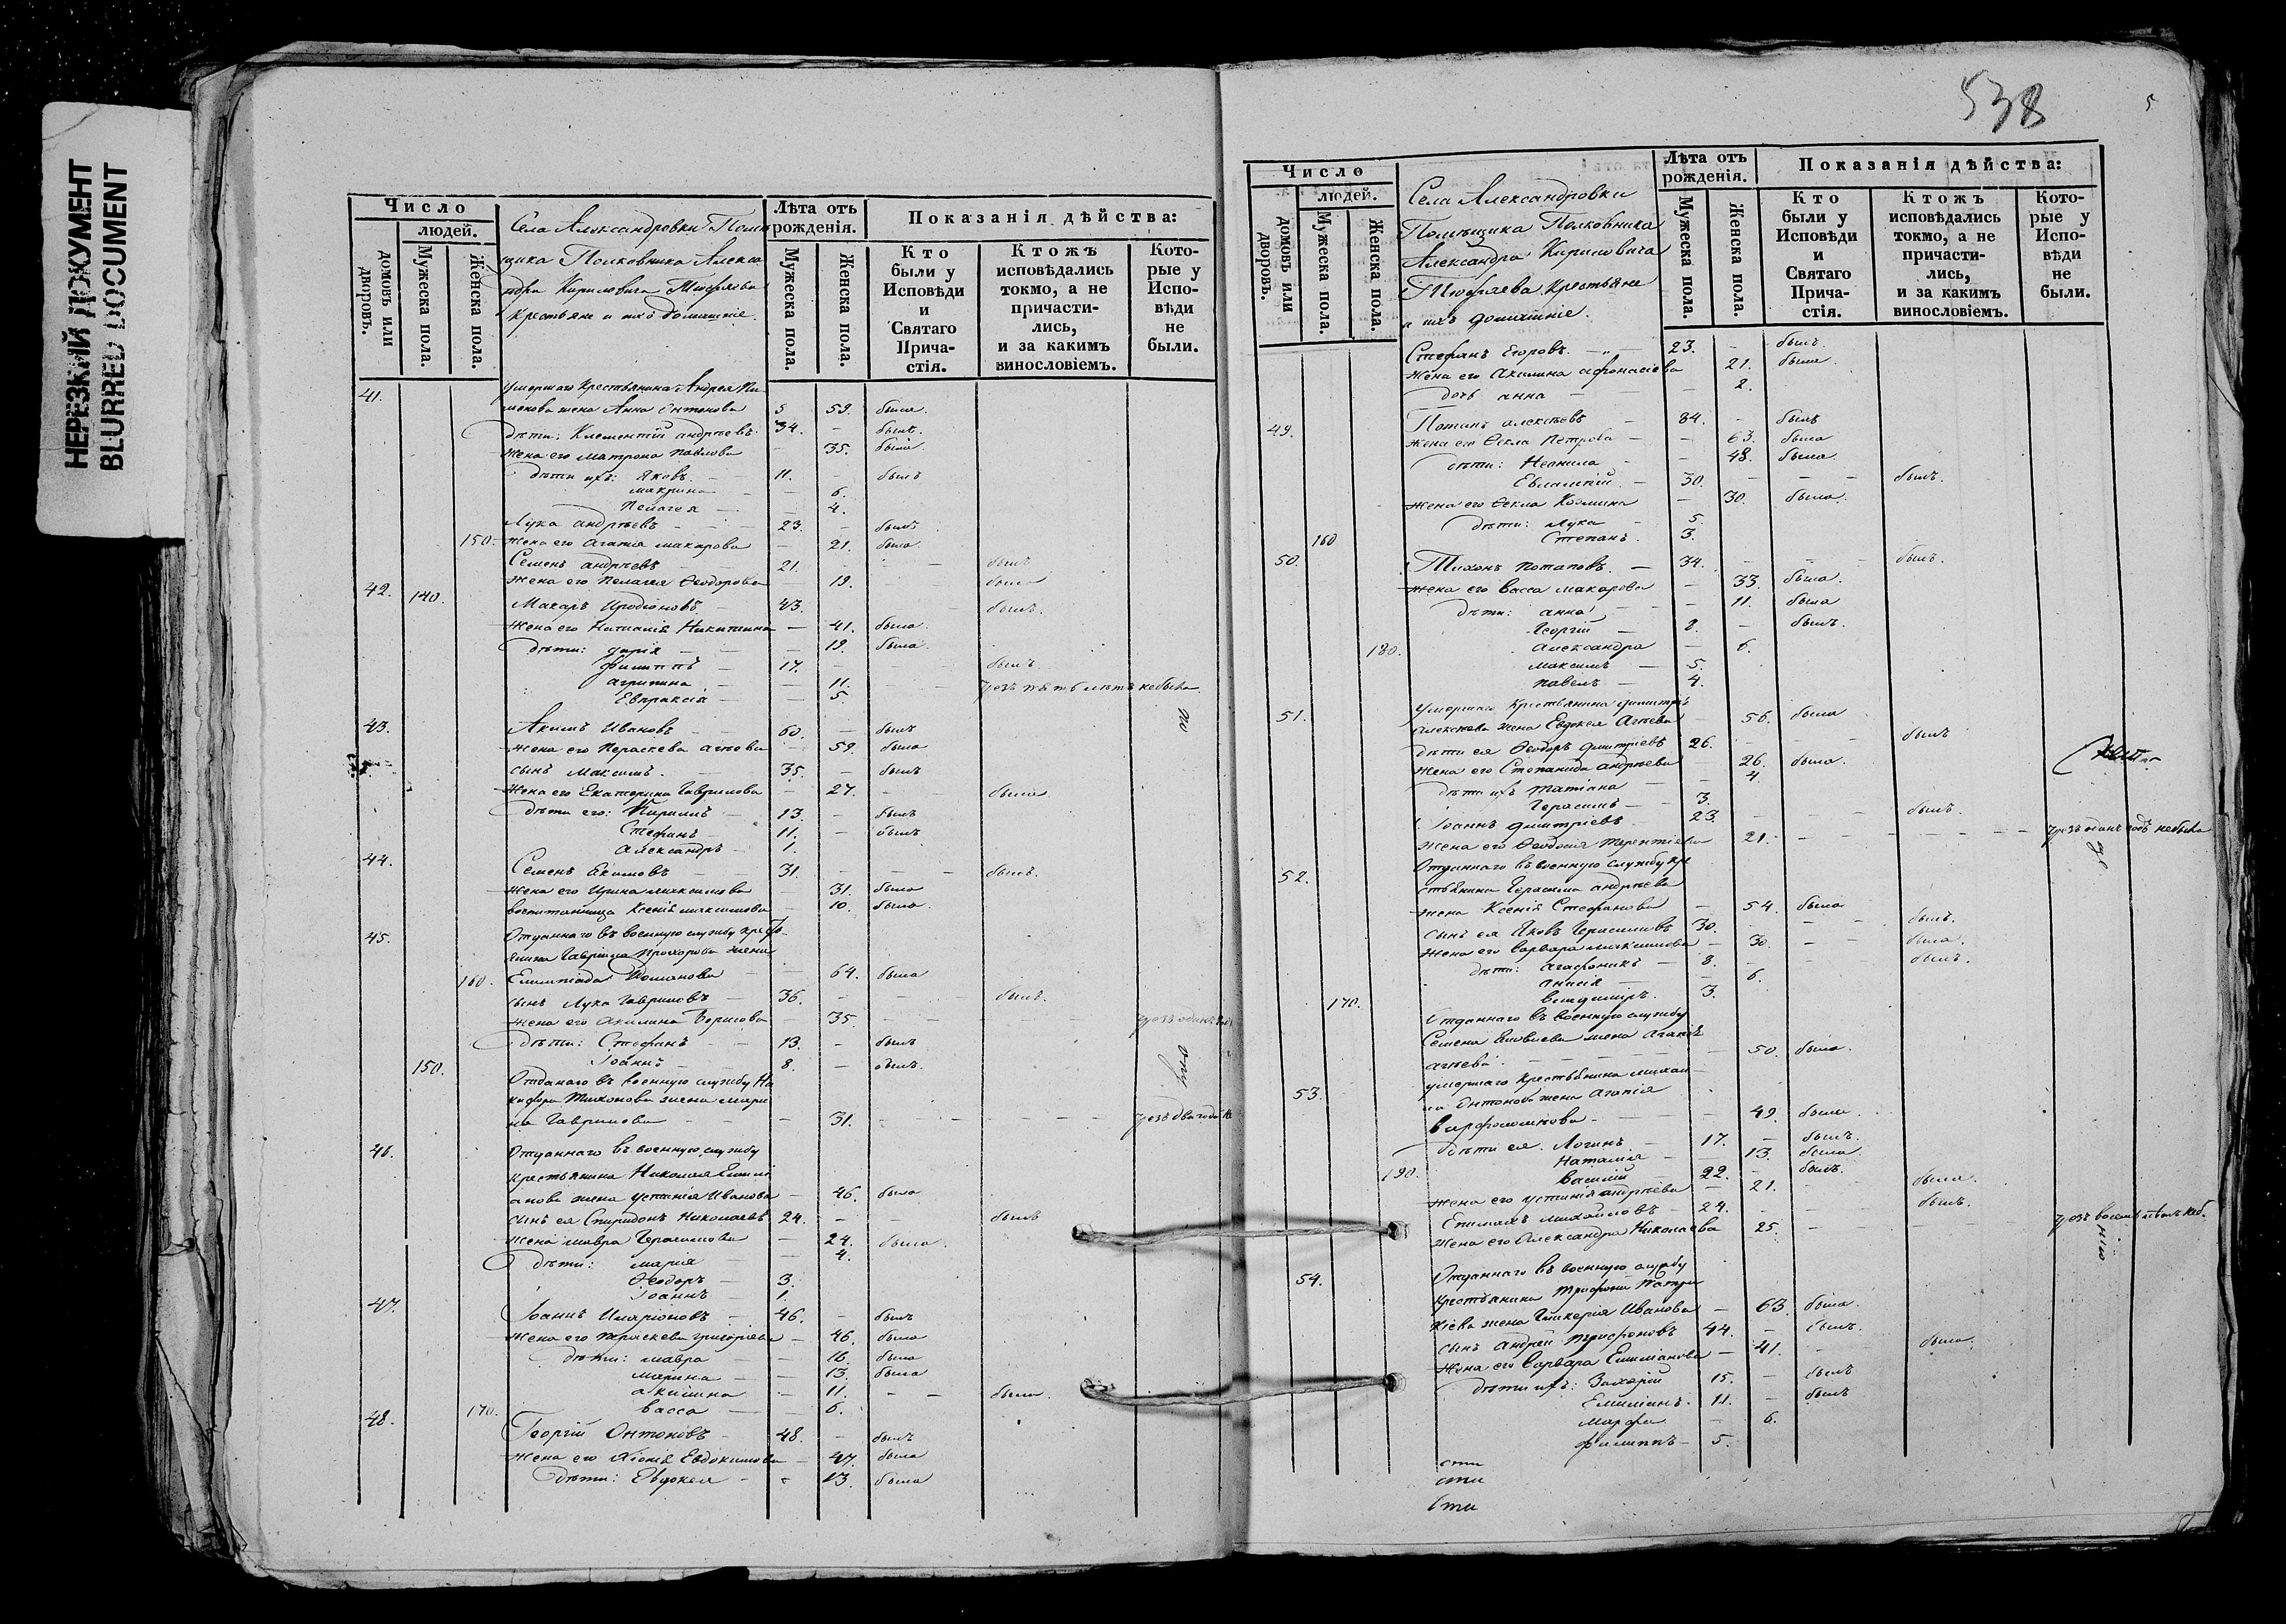 НЕРЕЗКИЙ ДОКУМЕНТ
BLURRED DOCUMENT
Число
людей.
домовъ или дворовъ.
Мужеска пола.
Женска пола.
Села Александровки Помѣ
щика Полковника Алекса
ндра Кириловича
крестьяне и ихъ домашніе.
Лѣта отъ рожденія.
Мужеска пола.
Женска пола.
Показанія дѣйства:
Кто были у Исповѣди и Святаго Прича- стія.
Ктожъ исповѣдались токмо, а не причасти- лись, и за какимъ винословіемъ.
Кото- рые у Испо- вѣди не были.
41. умершаго крестьянина Андрея
жена Анна Антонова 59. была.
дѣти: Климентий андрѣевъ 34. – былъ.
жена его матрона павлова – 35. была.
дѣти ихъ: Яковъ. – 11. – былъ
макрина – – 6.
Пелагея – – 4.
Лука андрѣевъ – 23. – былъ
150. жена его Агапія макарова – 21. была.
Семенъ андрѣевъ – 21. – – былъ
жена его пелагея Ѳеодорова – 19. была
42. 140. Макаръ Иродіоновъ – 43. былъ.
жена его Наталія Никитина – 41. была.
дѣти: дарія – – 19. была.
филиппъ – 17. – былъ.
агрипина – – 11. – чрезъ пять лѣтъ не была
Евпраксія – – 5.
43. Акимъ Ивановъ – 60. – былъ
жена его Параскева агѣева – 59. была
сынъ Максимъ. – 35. – былъ
жена его Екатерина Гаврилова – 27. – была.
дѣти его: Кирилъ – 13. – былъ
Стефанъ – 11. – былъ
Александръ – 1.
44. Семенъ Акимовъ – 31. – – былъ.
жена его Ирина максимова – 31. была
воспитанница Ксенія максимова – 10. была.
45. Отданнаго въ военную службу кре
янина Гавріила Прохорова жена
160. Романова – – 64. была
сынъ Лука Гавриловъ – 36. – – былъ.
жена его Акилина Борисова – 35. – – – чрезъ одинъ годъ
дѣти: Стефанъ – 13. – былъ
150. Іоаннъ – 8. – былъ.
Отданаго въ военную службу Ни
кифора Тихонова жена мари
на Гаврилова – – 31. – – – чрезъ два года не
46. Отданнаго въ военную службу
крестьянина Николая Емели
анова жена устинія Иванова – 46. была
сынъ ея Спиридонъ Николаевъ 24. – – былъ
жена мавра Герасимова – 24. была.
дѣти: марія – 4.
Ѳеодоръ – 3.
Іоаннъ – 1.
47. Іоаннъ Иларіоновъ – 46. – былъ
жена его параскева григоріева – 46. была
дѣти: мавра – – 16. была
марина – – 13. была
акилина – 11. – – была.
170. васса – – 6.
48. Георгій Онтоновъ – 48. – былъ
жена его Хіонія Евдокимова – 47. была
дѣти: Евдокея – – 13. была
538
5
Число
людей.
домовъ или дворовъ.
Мужеска пола.
Женска пола.
Села Александровки
Помѣщика Полковника
Александра Кириловича
крестьяне
и ихъ домашніе.
Лѣта отъ рожденія.
Мужеска пола.
Женска пола.
Показанія дѣйства:
Кто были у Исповѣди и Святаго Прича- стія.
Ктожъ исповѣдались токмо, а не причасти- лись, и за какимъ винословіемъ.
Кото- рые у Испо- вѣди не были.
Стефанъ Егоровъ. – 23. – былъ.
жена его Акилина афонасіева 21. была.
дочь анна – – 2.
49. Потапъ алексѣевъ – 84. – былъ
жена его Ѳекла Петрова – – 63. была
дѣти: Неонила – – 48. была
Евлампій – 30. – – – былъ.
жена его Ѳекла Козмина – 30. была.
дѣти: Лука – 5.
160 Степанъ. 3.
50. Тихонъ потаповъ. – 34. – – – былъ.
жена его васса макарова – 33. была.
дѣти: анна – – 11. была
Георгій – 8. – былъ.
180. Александра – 6.
максимъ – 5.
павелъ – 4.
51. умершаго крестьянина димитрія
алексѣева жена Евдокея Агѣева – 56. была
дѣти ея Ѳеодоръ димитріевъ 26. – – былъ
жена его Степанида андрѣева – 26. была.
дѣти ихъ татіана – 4
Герасимъ – 3.
Іоаннъ димитріевъ – 23. – – былъ.
жена его Ѳеодосія терентіева 21. – – – чрезъ одинъ годъ не была
52. Отданнаго въ военную службу кре
стьянина Герасима андрѣева
жена Ксенія Стефанова – 54. была
сынъ ея Яковъ Герасимовъ 30. – – былъ.
жена его варвара максимова – 30. – – была.
дѣти: агафоникъ – 8. – – былъ.
анисія – – 6.
170. владиміръ. 3.
Отданнаго въ военную службу
Семена жена Агапія
агѣева – 50. была.
53. умершаго крестьянина михаи
ла Антонова жена агапія
варфоломеова – – 49. была.
дѣти ея. Логинъ – 17. – былъ.
Наталія – – 13. была.
190. василій – 22. – былъ.
жена его устинія андрѣева – 21. – была.
михайловъ – 24. – – былъ.
жена его Александра Николаева 25. – чрезъ восемь лѣтъ не б.
54. Отданнаго въ военную службу
крестьянина Трифона Патри
кіева жена Гликерія Иванова – 63. была.
сынъ андрей трифоновъ 44. – былъ.
жена его варвара Емиліанова – 41. – была.
дѣти ихъ: Захарій 15. – былъ
Емиліанъ. 11. – былъ
марфа – 6.
филиппъ – 5.